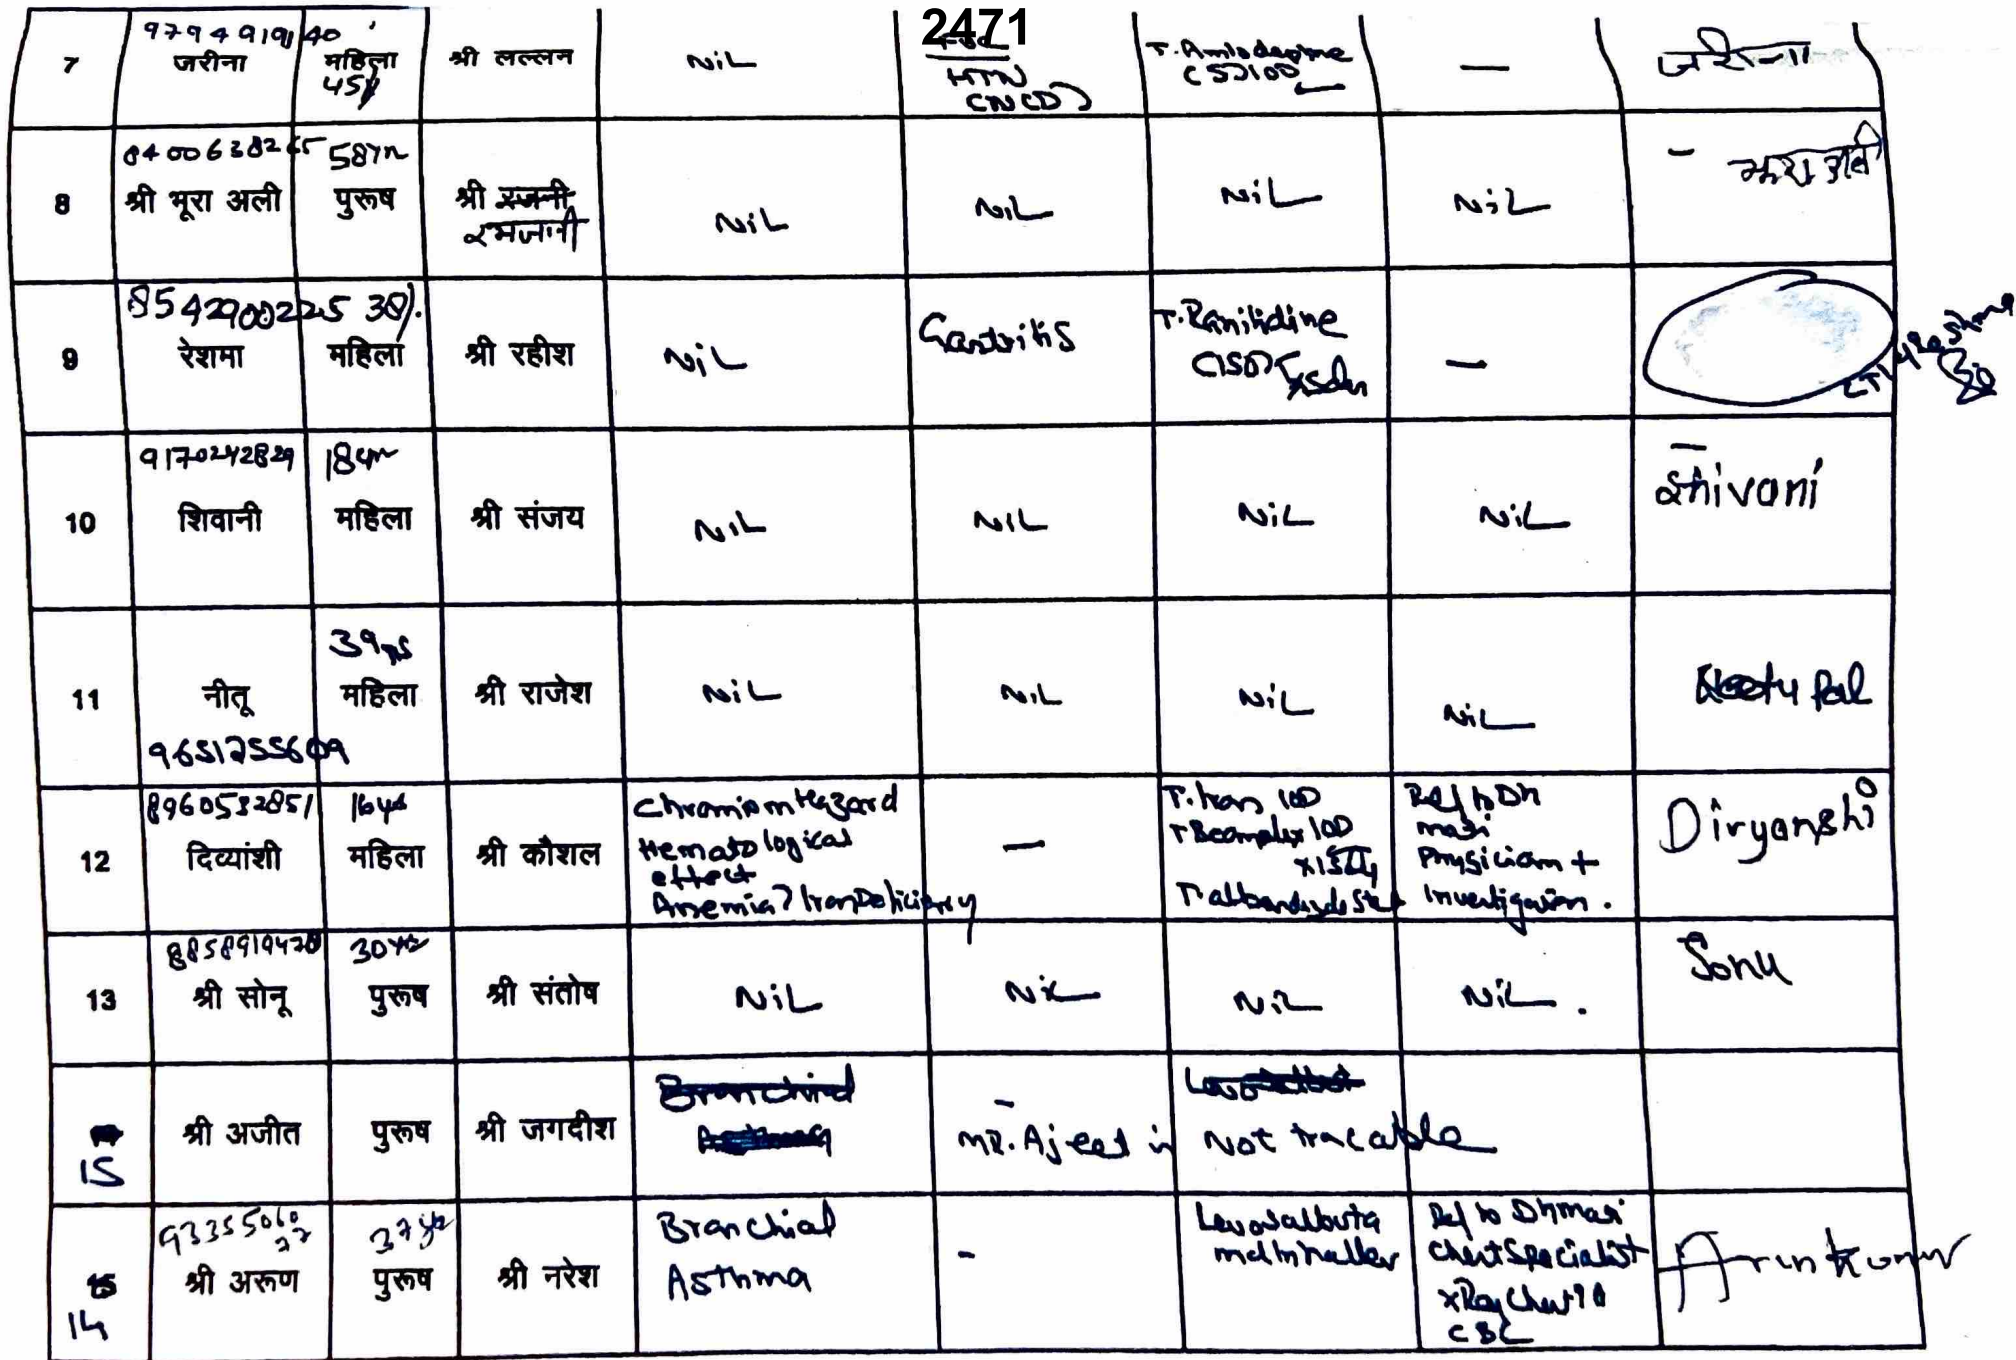 2471
7
9794919140
जरीना
महिला
45y
श्री लल्लन
NiL
HTN
(NCD)
T. Amlodepine
(5)10D
—
जरीना
8
8400638265
श्री भूरा अली
58yr
पुरूष
श्री रजनी
रमजानी
NiL
NiL
NiL
NiL
-
9
8542900225
रेशमा
38y.
महिला
श्री रहीश
NiL
Gastritis
T. Ranitidine
(150)
x5day
—
LTI of Reshma
10
9170242829
शिवानी
18yr
महिला
श्री संजय
NiL
NiL
NiL
NiL
Shivani
11
नीतू
9651255609
39yrs
महिला
श्री राजेश
NiL
NiL
NiL
NiL
Neetu Pal
12
8960532851
दिव्यांशी
16yrs
महिला
श्री कौशल
Chromiom Hazard
Hematological
effect
Anemia? Iron Deficiency
—
T. Iron 10D
T Bcomplex 10D
Ref to DH
Physician +
Investigation.
Diryanshi
13
8858919428
श्री सोनू
30yrs
पुरूष
श्री संतोष
NiL
NiL
NiL
NiL.
Sonu
15
श्री अजीत
पुरूष
श्री जगदीश
Bronchial
Asthma
-
MR. Ajeet is Not tracable
14
9335506027
श्री अरूण
37yr
पुरूष
श्री नरेश
Bronchial
Asthma
-
Levosalbuta
mol Inhaller
Ref to DH
Chest Specialist
xRay Chest PA
CBC
Arun Kumar